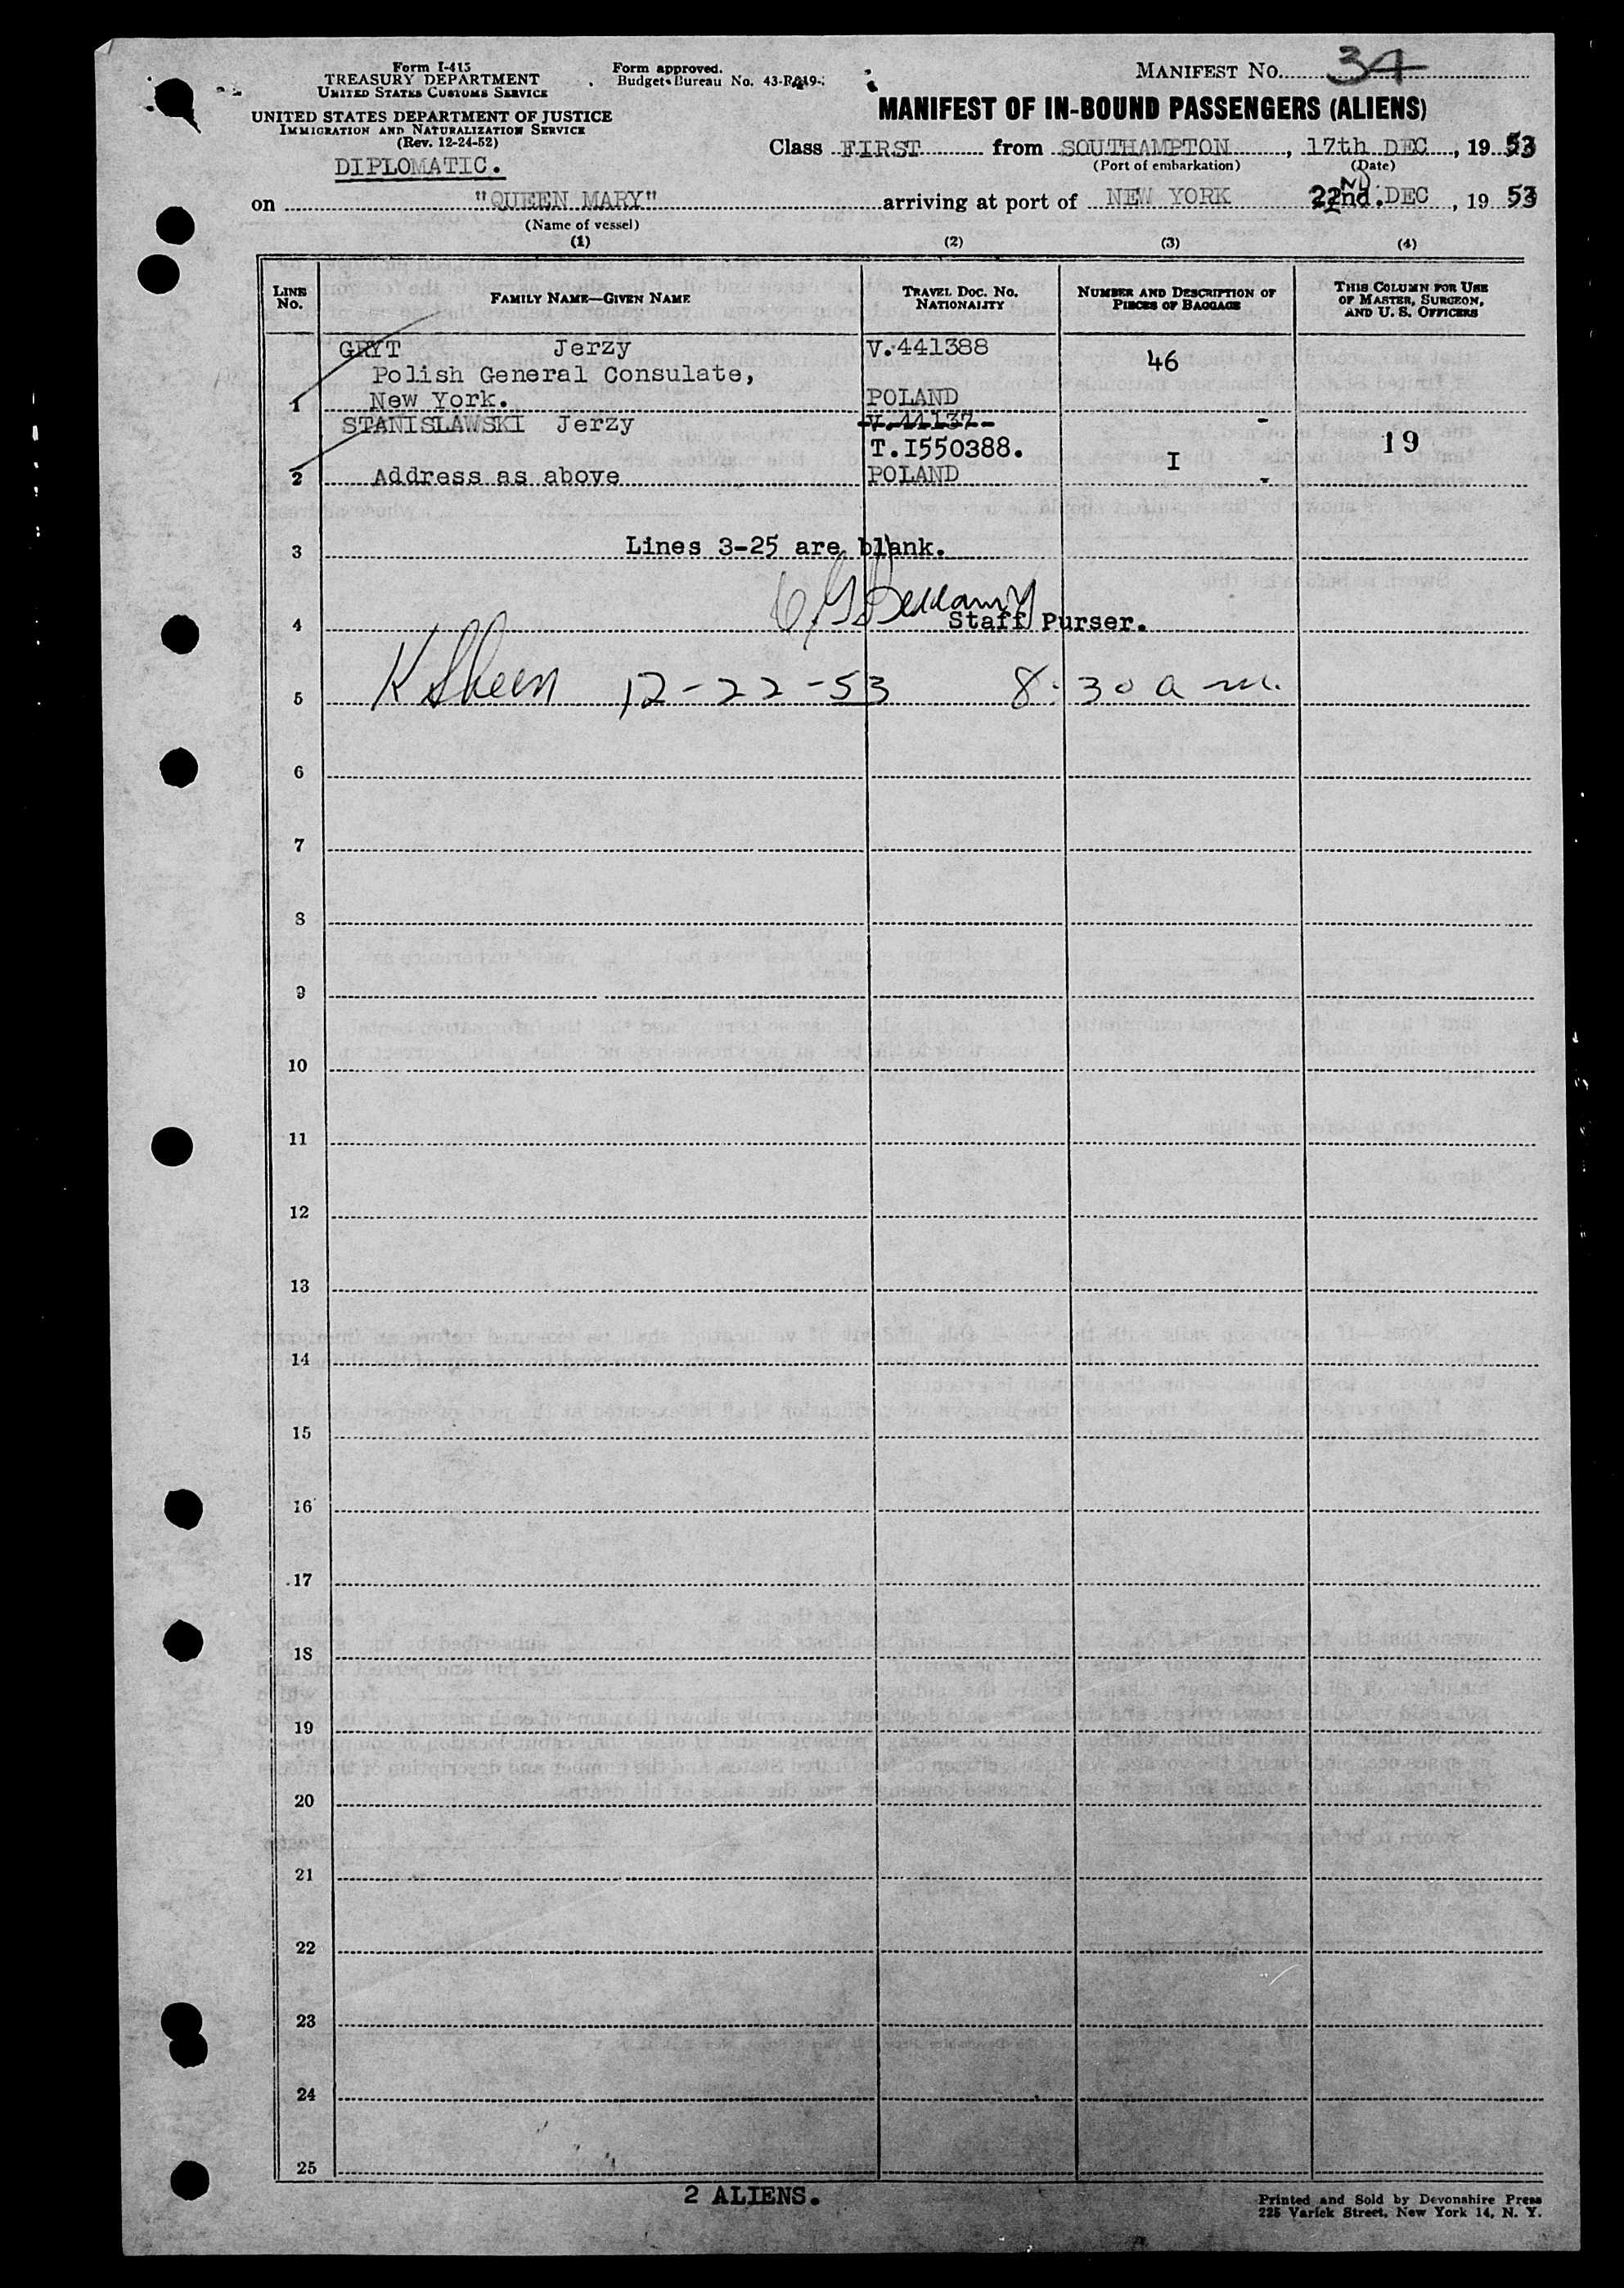 Form I-415
TREASURY DEPARTMENT
UNITED STATES CUSTOMS SERVICE
UNITED STATES DEPARTMENT OF JUSTICE
IMMIGRATION AND NATURALIZATION SERVICE
(Rev. 12-24-52)
DIPLOMATIC.
Form approved.
Budget Bureau No.
MANIFEST NO. 34
MANIFEST OF IN-BOUND PASSENGERS (ALIENS)
Class FIRST from SOUTHAMPTON, 17th DEC, 1953
(Port of embarkation) (Date)
on "QUEEN MARY" arriving at port of NEW YORK 22nd. DEC, 1953
(Name of vessel)
(1) (2) (3) (4)
LINE No. FAMILY NAME—GIVEN NAME TRAVEL DOC. No. NATIONALITY NUMBER AND DESCRIPTION OF PIECES OF BAGGAGE THIS COLUMN FOR USE OF MASTER, SURGEON, AND U. S. OFFICERS
GRYT Jerzy V.441388
Polish General Consulate, 46
1 New York. POLAND
STANISLAWSKI Jerzy V.44137 -
T.I550388. I 19
2 Address as above POLAND -
3 Lines 3-25 are blank.
4 Staff Purser.
5 12-22-53 8:30 a m.
6
7
8
9
10
11
12
13
14
15
16
17
18
19
20
21
22
23
24
25
2 ALIENS.
Printed and Sold by Devonshire Press
225 Varick Street, New York 14, N. Y.